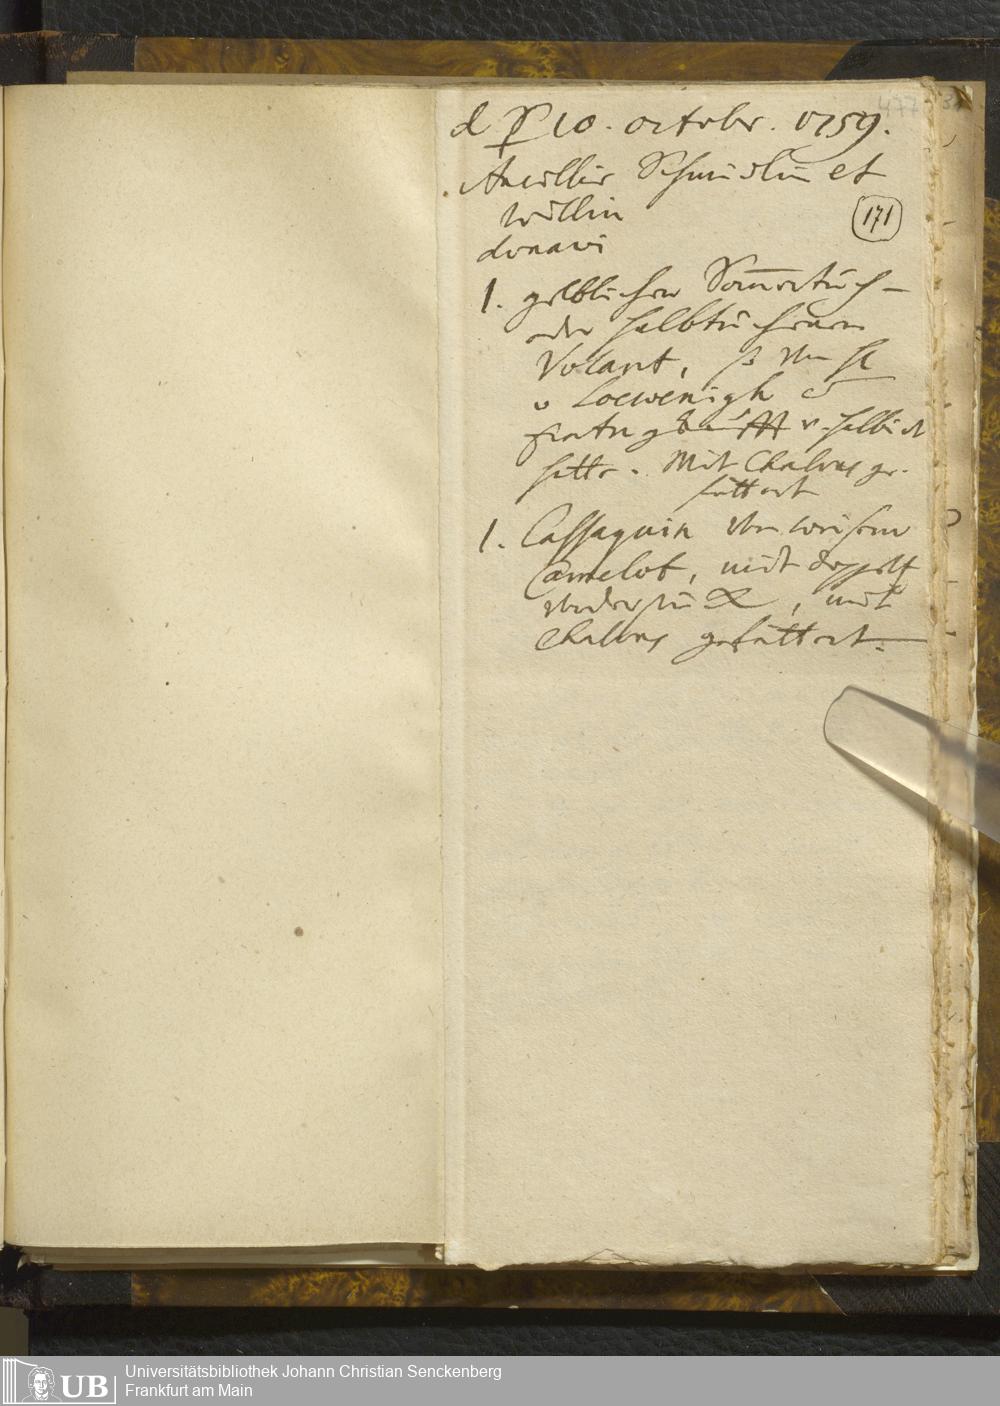 477
d 10. octobr. 1759.
Ancillis Schmidlin et
willin
donavi
171
1. gelblichen Som̄ertuch-
oder halbtuchenen
Volant, so von H
v Loewenigh
hatte. Mit Chalons ge-
füttert
1. Cassaquin von weisem
Camelot, mit doppelt
, mit
Chalons gefüttert.
Universitätsbibliothek Johann Christian Senckenberg
Frankfurt am Main
UB